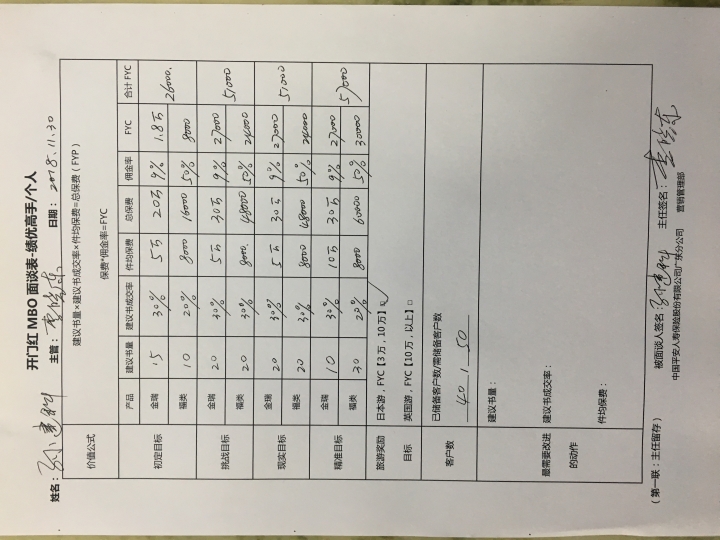 开门红 MBO 面谈表-绩优高手/个人
姓名： 主管： 日期：2018.11.30
价值公式 建议书量×建议书成交率×件均保费=总保费（FYP）
保费*佣金率=FYC
产品 建议书量 建议书成交率 件均保费 总保费 佣金率 FYC 合计 FYC
初定目标 金瑞 15 30% 5万 20万 9% 1.8万 26000.
福类 10 20% 8000 16000 50% 8000
挑战目标 金瑞 20 30% 5万 30万 9% 27000 51000
福类 20 30% 8000. 48000 50% 24000
现实目标 金瑞 20 30% 5万 30万 9% 27000 51000
福类 20 30% 8000 48000 50% 24000
精准目标 金瑞 10 30% 10万 30万 9% 27000 57000
福类 30 20% 8000 60000 50% 30000
旅游奖励 日本游，FYC【3万，10万】☑
目标 英国游，FYC【10万，以上】□
客户数 已储备客户数/需储备客户数
40 / 50
最需要改进 建议书量：
的动作 建议书成交率：
件均保费：
（第一联：主任留存） 被面谈人签名： 主任签名：
中国平安人寿保险股份有限公司广东分公司 营销管理部